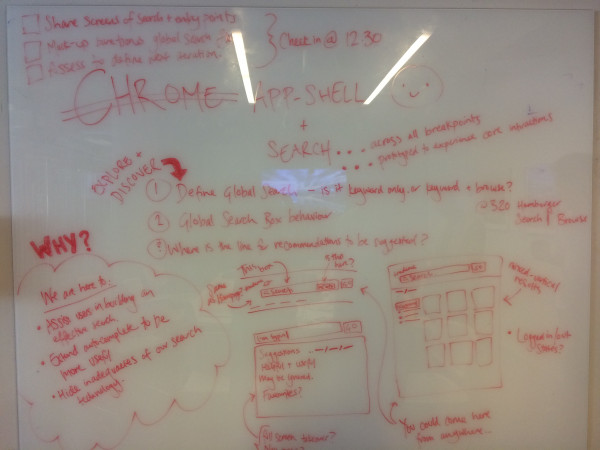 Share screens of Search + entry points
Mock-up wireframes global search
Assess to define next iteration
Check in @ 12.30
CHROME APP-SHELL
+
SEARCH ... across all breakpoints
... prototyped to experience core interactions
EXPLORE +
DISCOVER
1 Define Global Search - is it keyword only, or keyword + browse?
2 Global Search Box behavior
3 Where is the line for recommendations to be suggestion?
~320 Hamburger
Search | Browse
WHY?
We are here to...
• Assist users in building an
effective search
• Extend autocomplete to be
more useful
• Hide inadequacies of our search
technology.
Suggestions
Helpful + useful
May be ignored.
Favourites?
• Logged in/out
States?
Full screen takeover?
You could come here
from anywhere...